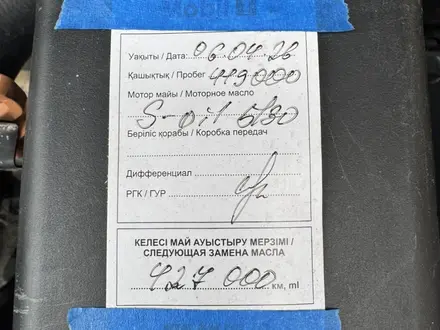 Mobil 1
Уақыты / Дата: 06.04.26
Қашықтық / Пробег 419000
Мотор майы / Моторное масло
S-oil 5/30
Беріліс қорабы / Коробка передач
Дифференциал
РГК / ГУР
КЕЛЕСІ МАЙ АУЫСТЫРУ МЕРЗІМІ /
СЛЕДУЮЩАЯ ЗАМЕНА МАСЛА
427 000 км, ml